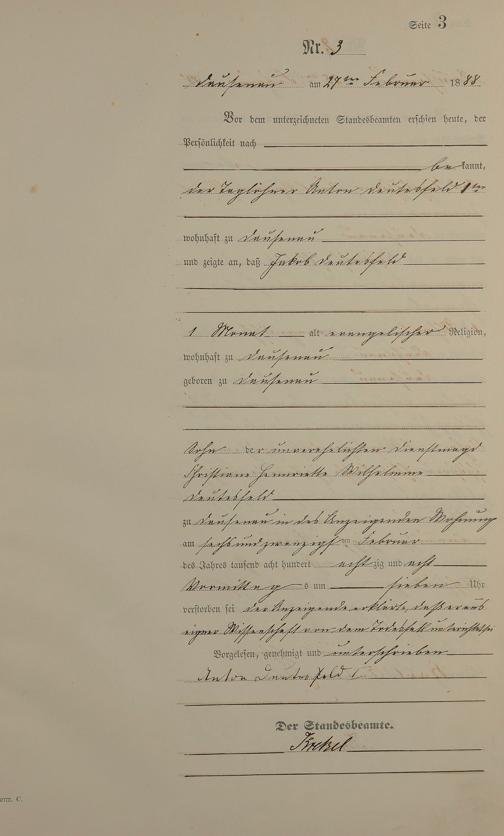 Seite 3
Nr. 3
Dausenau am 27ten Februar 1888
Vor dem unterzeichneten Standesbeamten erschien heute, der
Persönlichkeit nach
be kannt,
der Taglöhner Anton Deutesfeld 1ter
wohnhaft zu Dausenau
und zeigte an, daß Jakob Deutesfeld
1 Monat alt evangelischer Religion,
wohnhaft zu Dausenau
geboren zu Dausenau
Sohn der unverehelichten Dienstmagd
Christiane Henriette Wilhelmine
Deutesfeld
zu Dausenau in des Anzeigenden Wohnung
am sechsundzwanzigsten Februar
des Jahres tausend acht hundert achtzig und acht
Vormittags um sieben Uhr
verstorben sei der Anzeigende erklärte, daß er aus
eigner Wissenschaft von dem Todesfall unterrichtet sei
Vorgelesen, genehmigt und unterschrieben
Anton Deutesfeld
Der Standesbeamte.
orm. C.